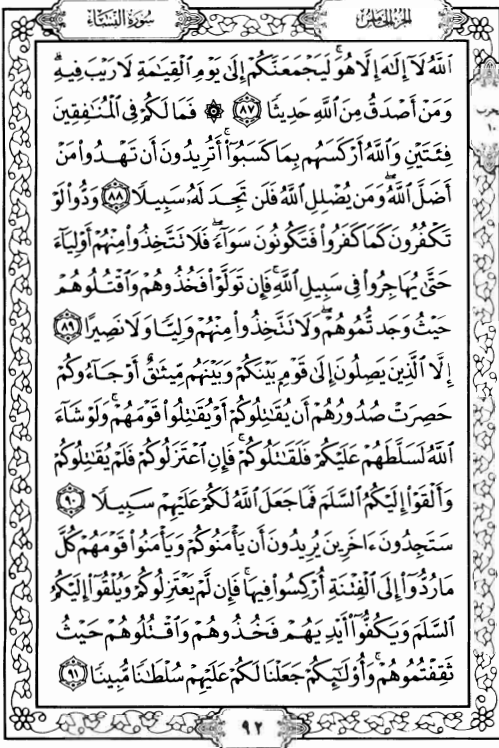 سُورَةُ النِّسَاءِ
الجُزْءُ الخَامِسُ
ٱللَّهُ لَآ إِلَٰهَ إِلَّا هُوَۚ لَيَجْمَعَنَّكُمْ إِلَىٰ يَوْمِ ٱلْقِيَٰمَةِ لَا رَيْبَ فِيهِۗ
وَمَنْ أَصْدَقُ مِنَ ٱللَّهِ حَدِيثًا ٨٧ ۞ فَمَا لَكُمْ فِى ٱلْمُنَٰفِقِينَ
فِئَتَيْنِ وَٱللَّهُ أَرْكَسَهُم بِمَا كَسَبُوٓا۟ۚ أَتُرِيدُونَ أَن تَهْدُوا۟ مَنْ
أَضَلَّ ٱللَّهُۖ وَمَن يُضْلِلِ ٱللَّهُ فَلَن تَجِدَ لَهُۥ سَبِيلًا ٨٨ وَدُّوا۟ لَوْ
تَكْفُرُونَ كَمَا كَفَرُوا۟ فَتَكُونُونَ سَوَآءًۖ فَلَا تَتَّخِذُوا۟ مِنْهُمْ أَوْلِيَآءَ
حَتَّىٰ يُهَاجِرُوا۟ فِى سَبِيلِ ٱللَّهِۚ فَإِن تَوَلَّوْا۟ فَخُذُوهُمْ وَٱقْتُلُوهُمْ
حَيْثُ وَجَدتُّمُوهُمْۖ وَلَا تَتَّخِذُوا۟ مِنْهُمْ وَلِيًّا وَلَا نَصِيرًا ٨٩
إِلَّا ٱلَّذِينَ يَصِلُونَ إِلَىٰ قَوْمٍۭ بَيْنَكُمْ وَبَيْنَهُم مِّيثَٰقٌ أَوْ جَآءُوكُمْ
حَصِرَتْ صُدُورُهُمْ أَن يُقَٰتِلُوكُمْ أَوْ يُقَٰتِلُوا۟ قَوْمَهُمْۚ وَلَوْ شَآءَ
ٱللَّهُ لَسَلَّطَهُمْ عَلَيْكُمْ فَلَقَٰتَلُوكُمْۚ فَإِنِ ٱعْتَزَلُوكُمْ فَلَمْ يُقَٰتِلُوكُمْ
وَأَلْقَوْا۟ إِلَيْكُمُ ٱلسَّلَمَ فَمَا جَعَلَ ٱللَّهُ لَكُمْ عَلَيْهِمْ سَبِيلًا ٩٠
سَتَجِدُونَ ءَاخَرِينَ يُرِيدُونَ أَن يَأْمَنُوكُمْ وَيَأْمَنُوا۟ قَوْمَهُمْ كُلَّ
مَا رُدُّوٓا۟ إِلَى ٱلْفِتْنَةِ أُرْكِسُوا۟ فِيهَاۚ فَإِن لَّمْ يَعْتَزِلُوكُمْ وَيُلْقُوٓا۟ إِلَيْكُمُ
ٱلسَّلَمَ وَيَكُفُّوٓا۟ أَيْدِيَهُمْ فَخُذُوهُمْ وَٱقْتُلُوهُمْ حَيْثُ
ثَقِفْتُمُوهُمْۚ وَأُو۟لَٰٓئِكُمْ جَعَلْنَا لَكُمْ عَلَيْهِمْ سُلْطَٰنًا مُّبِينًا ٩١
حزب
١٠
٩٢